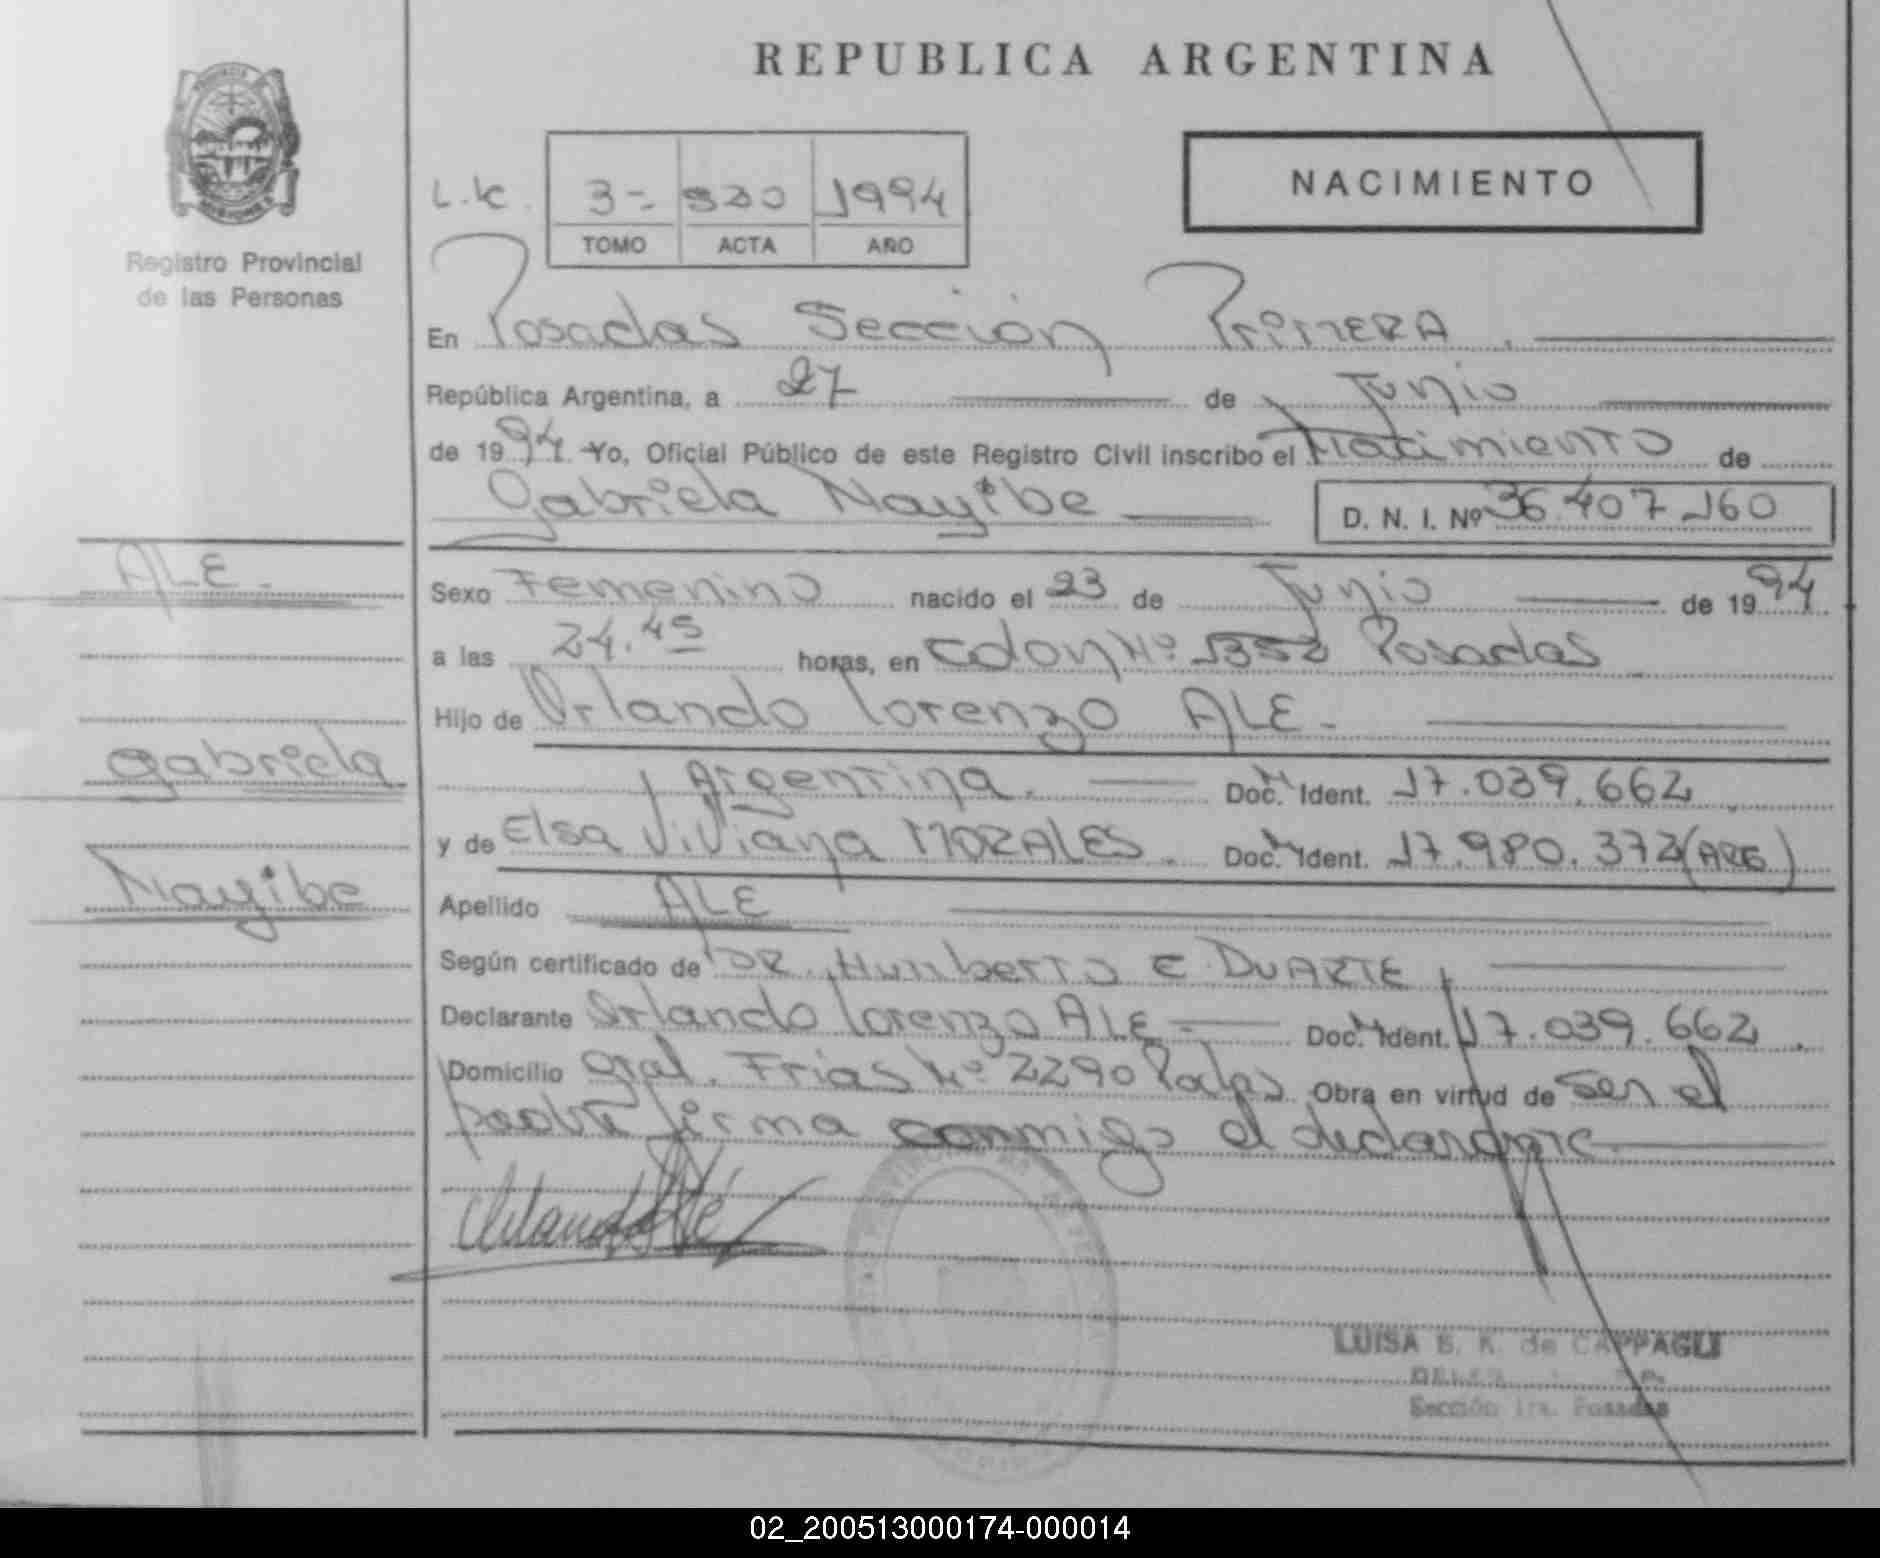 REPUBLICA ARGENTINA
NACIMIENTO
3= 1994
TOMO ACTA AÑO
Registro Provincial
de las Personas
En Posadas Sección PRIMERA.
República Argentina, a 27 de Junio
de 1994 Yo, Oficial Público de este Registro Civil inscribo el Nacimiento de
Gabriela Nayibe D. N. I. Nº 36.407.160
ALE.
Gabriela
Nayibe
Sexo Femenino nacido el 23 de Junio de 1994
a las horas, en Colon Nº 1352 Posadas
Hijo de Orlando Lorenzo ALE.
Argentina. Doc. Ident. 17.039.662
y de Elsa Viviana MORALES. Doc. Ident. 17.980.372 (ARG)
Apellido ALE
Según certificado de DR. Humberto E. DUARTE
Declarante Orlando Lorenzo ALE. Doc. Ident. 17.039.662.
Domicilio Gral. Frias Nº 2290 Obra en virtud de ser el
padre firma conmigo el declarante.
LUISA B. K. de CAPPAGLI
Sección 1ra. Posadas
02_200513000174-000014